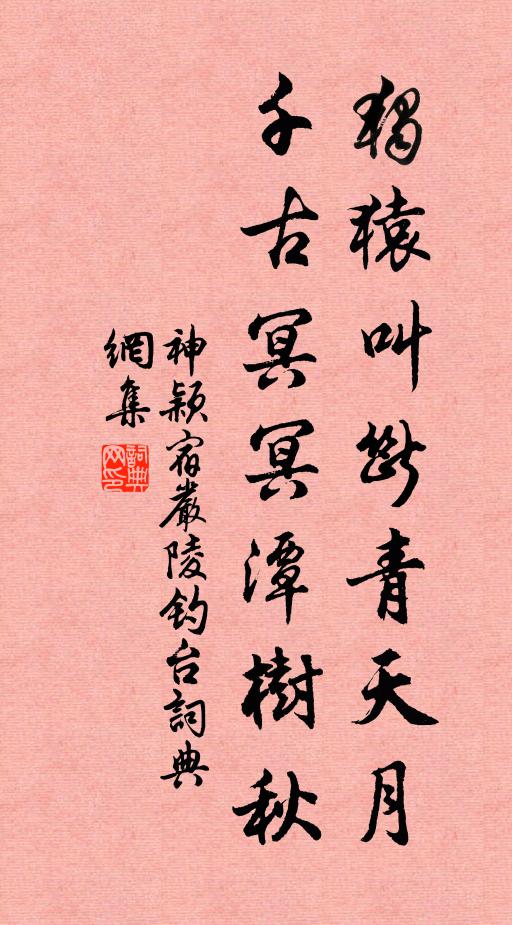 獨猿叫斷青天月
千古冥冥潭樹秋
神穎宿嚴陵釣台詞典
網集
詞典網印